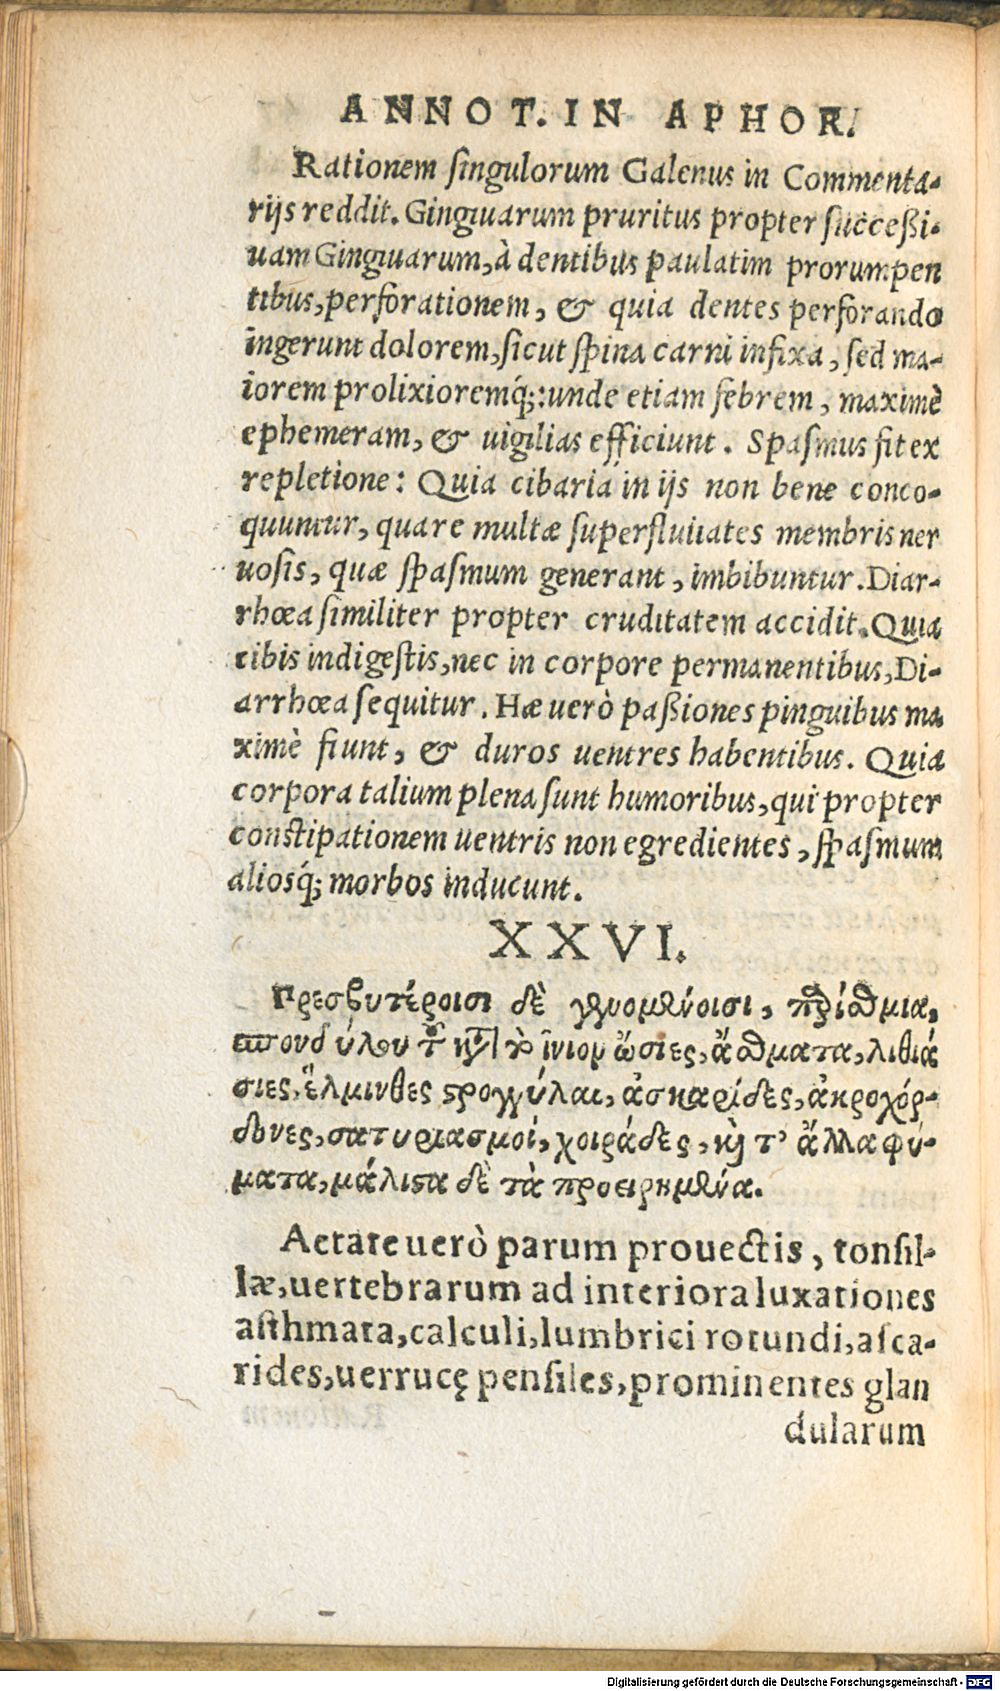 ANNOT. IN APHOR.
Rationem singulorum Galenus in Commenta-
rijs reddit. Gingiuarum pruritus propter successi-
uam Gingiuarum, à dentibus paulatim prorumpen
tibus, perforationem, & quia dentes perforando
ingerunt dolorem, sicut spina carni infixa, sed ma-
iorem prolixioremq́;: unde etiam febrem, maximè
ephemeram, & uigilias efficiunt. Spasmus fit ex
repletione: Quia cibaria in ijs non bene conco-
quuntur, quare multæ superfluitates membris ner
uosis, quæ spasmum generant, imbibuntur. Diar-
rhœa similiter propter cruditatem accidit. Quia
cibis indigestis, nec in corpore permanentibus, Di-
arrhœa sequitur. Hæ uerò passiones pinguibus ma
ximè fiunt, & duros uentres habentibus. Quia
corpora talium plena sunt humoribus, qui propter
constipationem uentris non egredientes, spasmum
aliosq́; morbos inducunt.
XXVI.
Πρεσβυτέροισι δὲ γενομένοισι, παρίσθμια,
σπονδύλου τοῦ κατὰ τὸ ἰνίον ὤσιες, ἄσθματα, λιθιά
σιες, ἕλμινθες στρογγύλαι, ἀσκαρίδες, ἀκροχόρ-
δονες, σατυριασμοί, χοιράδες, καὶ τ' ἄλλα φύ-
ματα, μάλιστα δὲ τὰ προειρημένα.
Aetate uerò parum prouectis, tonsil-
læ, uertebrarum ad interiora luxationes
asthmata, calculi, lumbrici rotundi, asca-
rides, uerrucę pensiles, prominentes glan
dularum
Digitalisierung gefördert durch die Deutsche Forschungsgemeinschaft - DFG